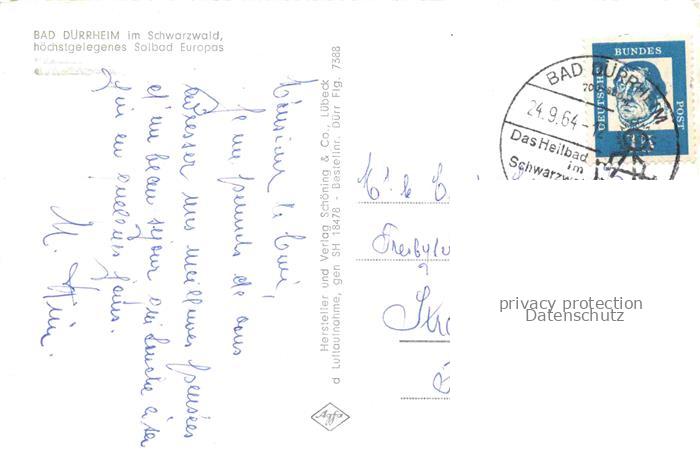 BAD DÜRRHEIM im Schwarzwald,
höchstgelegenes Solbad Europas
Monsieur le Curé,
Je me permets de vous
adresser mes meilleures pensées
d'un beau séjour qui touche à sa
fin en quelques jours.
M.
Hersteller und Verlag Schöning & Co., Lübeck
d Luftaufnahme, gen SH 18478 - Bestellnr. Dürr Flg. 7388
Agfa
DEUTSCHE
BUNDES
POST
15
BAD DÜRRHEIM
24.9.64
Das Heilbad
im
Schwarzwa
M. le
privacy protection
Datenschutz